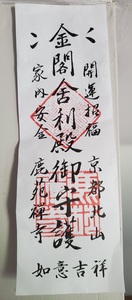 開運招福
京都北山
金閣舎利殿御守護
家内安全
鹿苑禅寺
如意吉祥